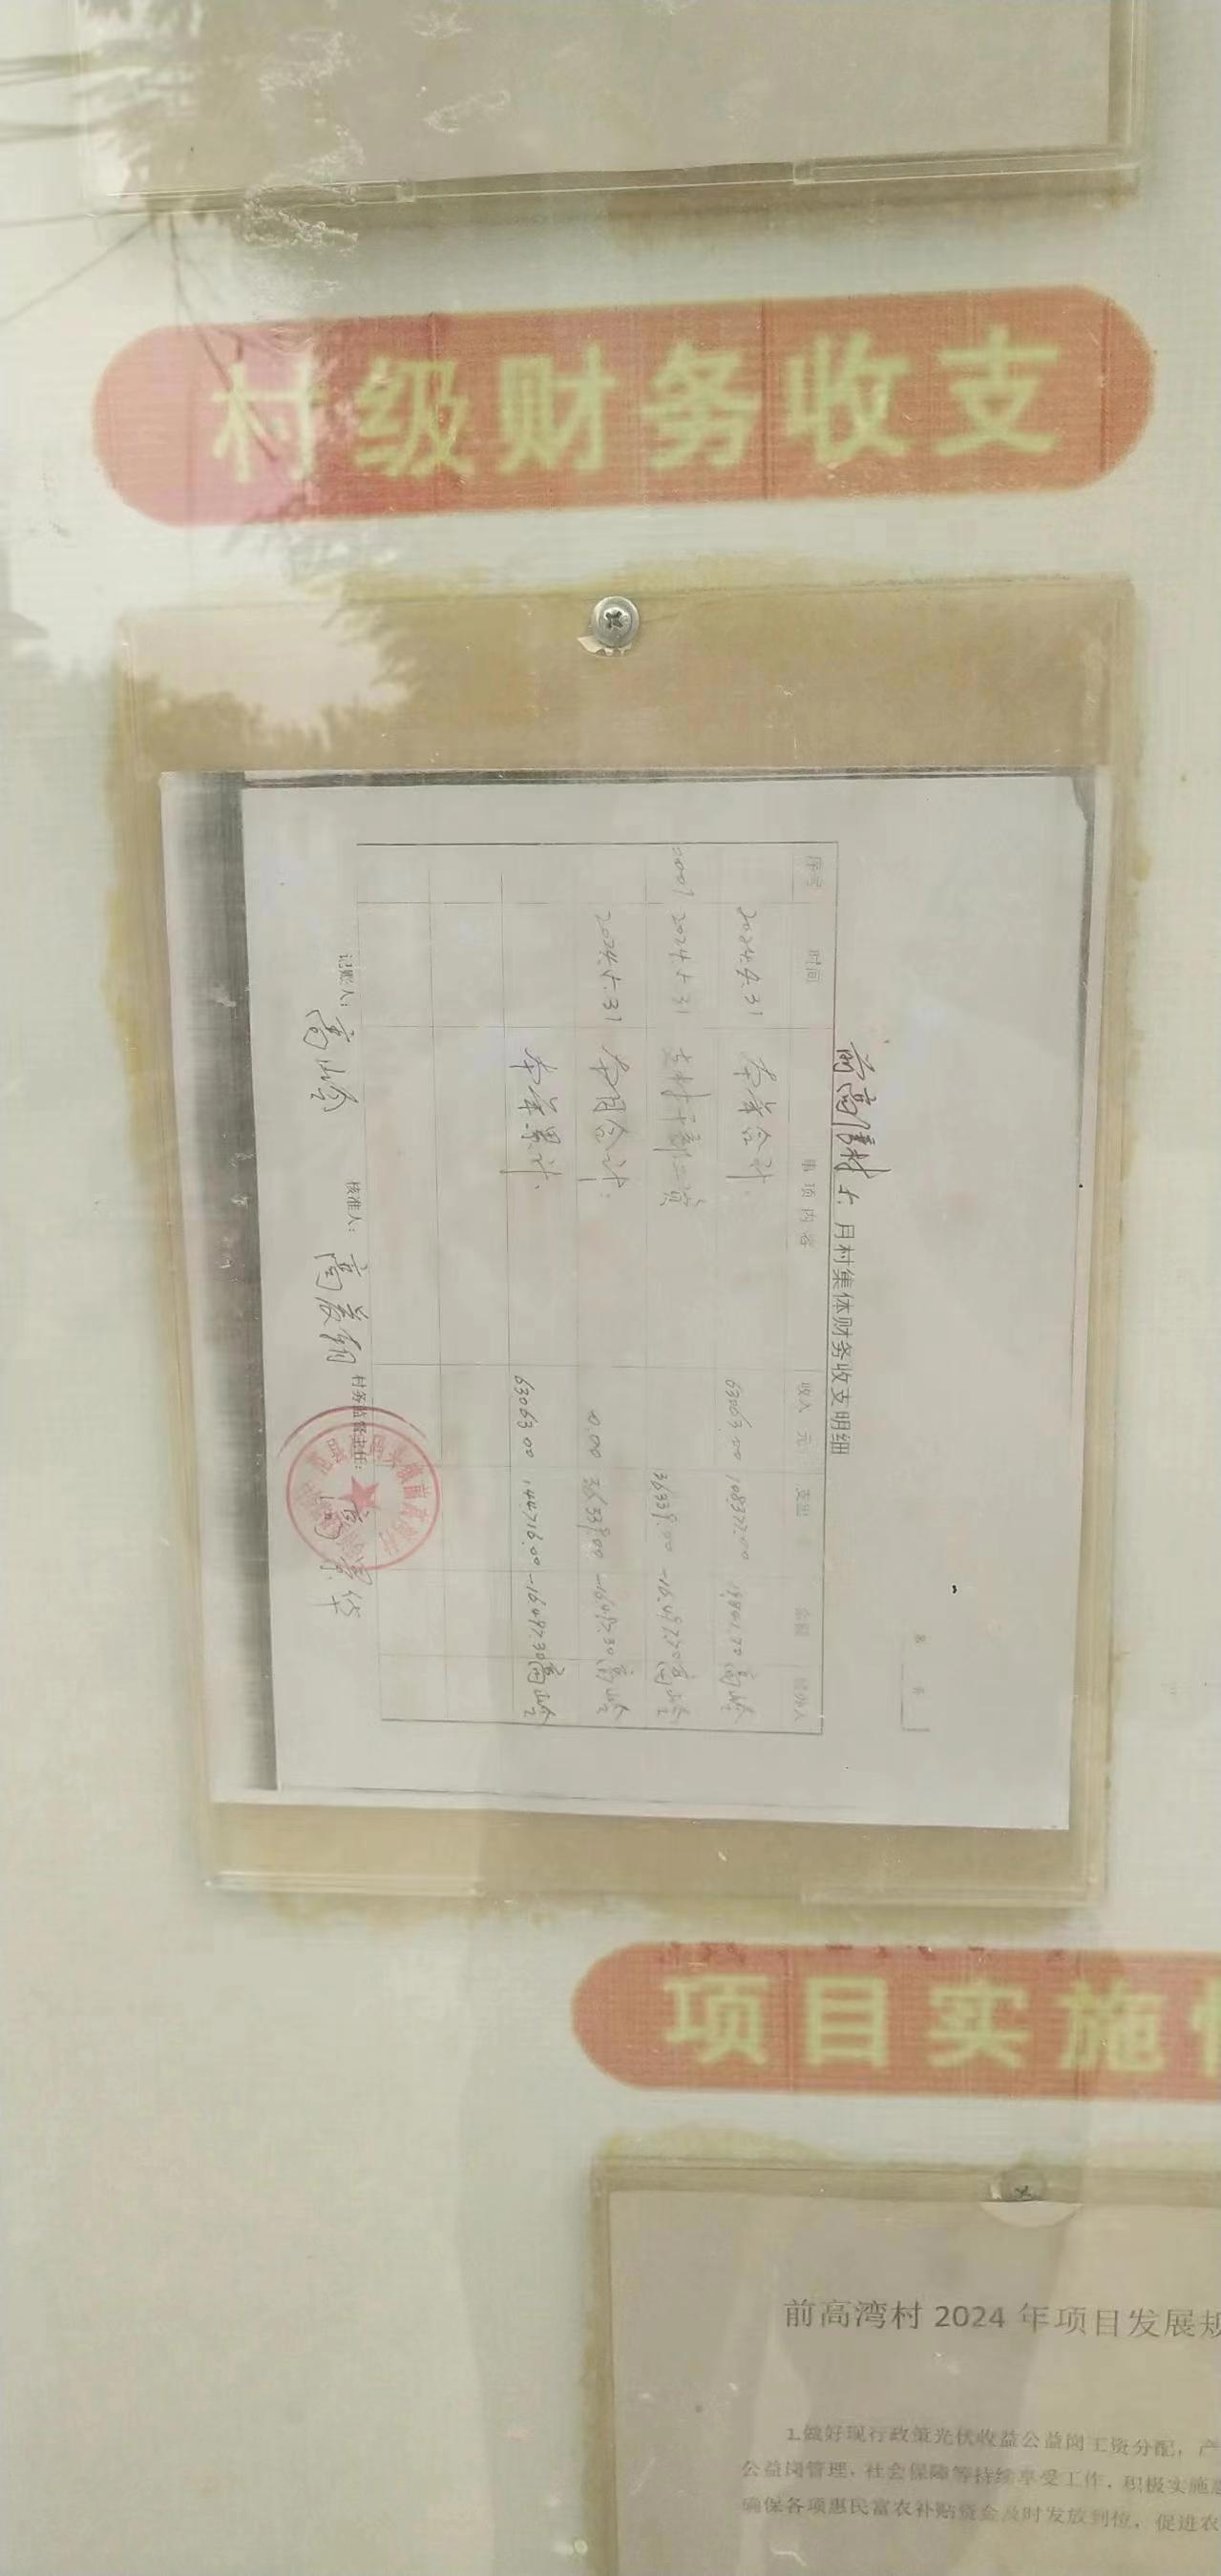 村级财务收支
前高湾村 5 月村集体财务收支明细
序号 时间 事项内容 收入 元 支出 余额 经办人
本年合计 63063.00 108377.00
0001 2024.5.31 支村干部工资 36339.00
2024.5.31 本月合计: 0.00 36339.00
本年累计. 63063.00 144716.00
记账人: 核准人: 高 村务监督主任: 高
项目实施
前高湾村 2024 年项目发展规
1.做好现行政策光伏收益公益岗工资分配，产
公益岗管理、社会保障等持续享受工作，积极实施
确保各项惠民富农补贴资金及时发放到位，促进农